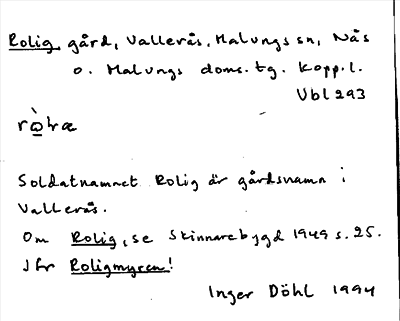 Rolig, gård, Vallerås, Malungs sn, Nås
o. Malungs doms. tg. Kopp. l.
Ubl 293
Soldatnamnet Rolig är gårdsnamn i
Vallerås.
Om Rolig, se Skinnarebygd 1949 s. 25.
Jfr Roligmyren!
Inger Döhl 1994